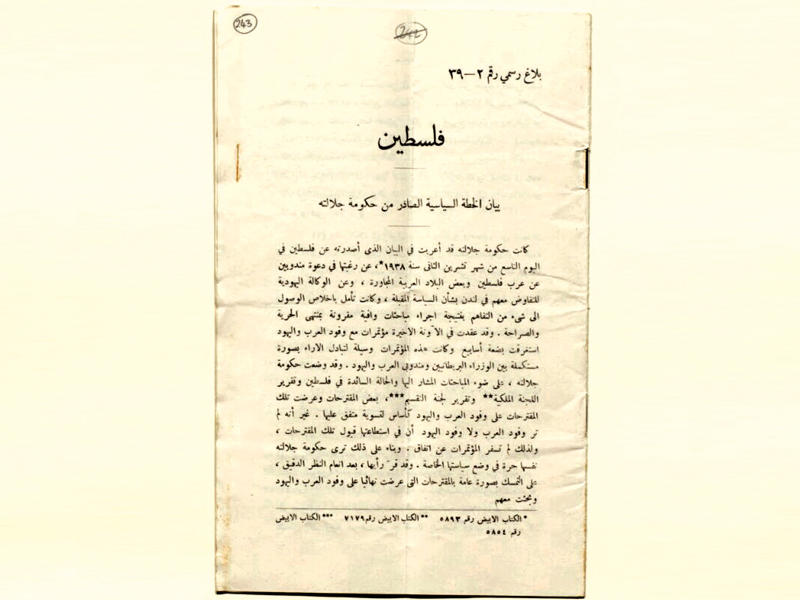 243
242
بلاغ رسمي رقم ٢—٣٩
فلسطين
بيان الخطة السياسية الصادر من حكومة جلالته
كانت حكومة جلالته قد أعربت في البيان الذى أصدرته عن فلسطين في
اليوم التاسع من شهر تشرين الثانى سنة ١٩٣٨*، عن رغبتها في دعوة مندوبين
عن عرب فلسطين وبعض البلاد العربية المجاورة ، وعن الوكالة اليهودية
للتفاوض معهم في لندن بشأن السياسة المقبلة ، وكانت تأمل باخلاص الوصول
الى شىء من التفاهم بنتيجة اجراء مباحثات وافية مقرونة بمنتهى الحرية
والصراحة . وقد عقدت في الآونة الأخيرة مؤتمرات مع وفود العرب واليهود
استغرقت بضعة أسابيع وكانت هذه المؤتمرات وسيلة لتبادل الاراء بصورة
مستكملة بين الوزراء البريطانيين ومندوبى العرب واليهود . وقد وضعت حكومة
جلالته ، على ضوء المباحثات المشار اليها والحالة السائدة في فلسطين وتقرير
اللجنة الملكية** وتقرير لجنة التقسيم***، بعض المقترحات وعرضت تلك
المقترحات على وفود العرب واليهود كأساس لتسوية متفق عليها . غير أنه لم
تر وفود العرب ولا وفود اليهود أن في استطاعتها قبول تلك المقترحات ،
ولذلك لم تسفر المؤتمرات عن اتفاق . وبناء على ذلك ترى حكومة جلالته
نفسها حرة في وضع سياستها الخاصة . وقد قر رأيها ، بعد انعام النظر الدقيق ،
على التمسك بصورة عامة بالمقترحات التى عرضت نهائيا على وفود العرب واليهود
وبحثت معهم
* الكتاب الابيض رقم ٥٨٩٣ ** الكتاب الابيض رقم ٧١٧٩ *** الكتاب الابيض
رقم ٥٨٥٤